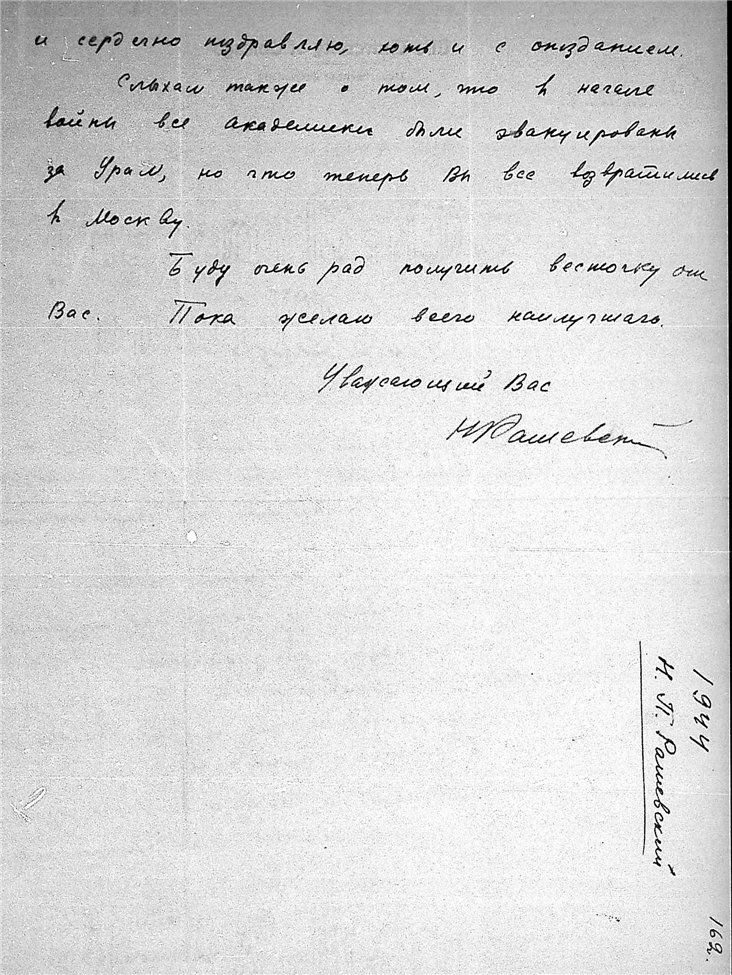 и сердечно поздравляю, хоть и с опозданием.
Слыхал также о том, что в начале
войны все академики были эвакуированы
за Урал, но что теперь Вы все возвратились
в Москву.
Буду очень рад получить весточку от
Вас. Пока желаю всего наилучшаго.
Уважающий Вас
Н Рашевский
1944
Н. П. Рашевский
162.